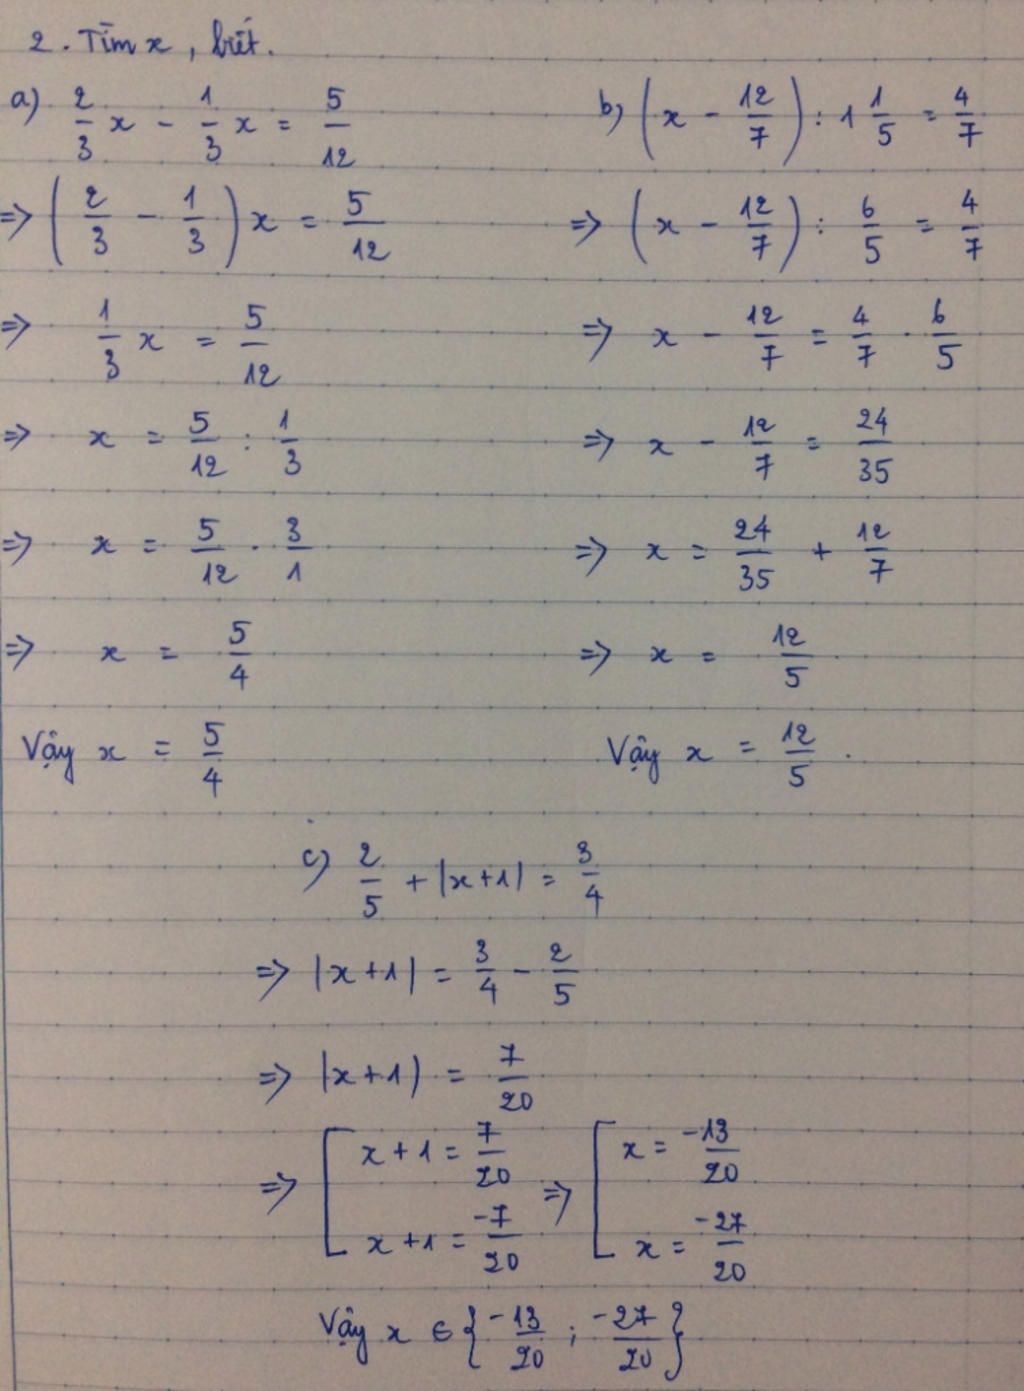 2. Tìm x, biết.
a) 2/3 x - 1/3 x = 5/12
=> (2/3 - 1/3) x = 5/12
=> 1/3 x = 5/12
=> x = 5/12 : 1/3
=> x = 5/12 . 3/1
=> x = 5/4
Vậy x = 5/4
b) (x - 12/7) : 1 1/5 = 4/7
=> (x - 12/7) : 6/5 = 4/7
=> x - 12/7 = 4/7 . 6/5
=> x - 12/7 = 24/35
=> x = 24/35 + 12/7
=> x = 12/5
Vậy x = 12/5.
c) 2/5 + |x+1| = 3/4
=> |x+1| = 3/4 - 2/5
=> |x+1| = 7/20
=> [ x+1 = 7/20 => [ x = -13/20
x+1 = -7/20 x = -27/20
Vậy x ∈ {-13/20 ; -27/20}